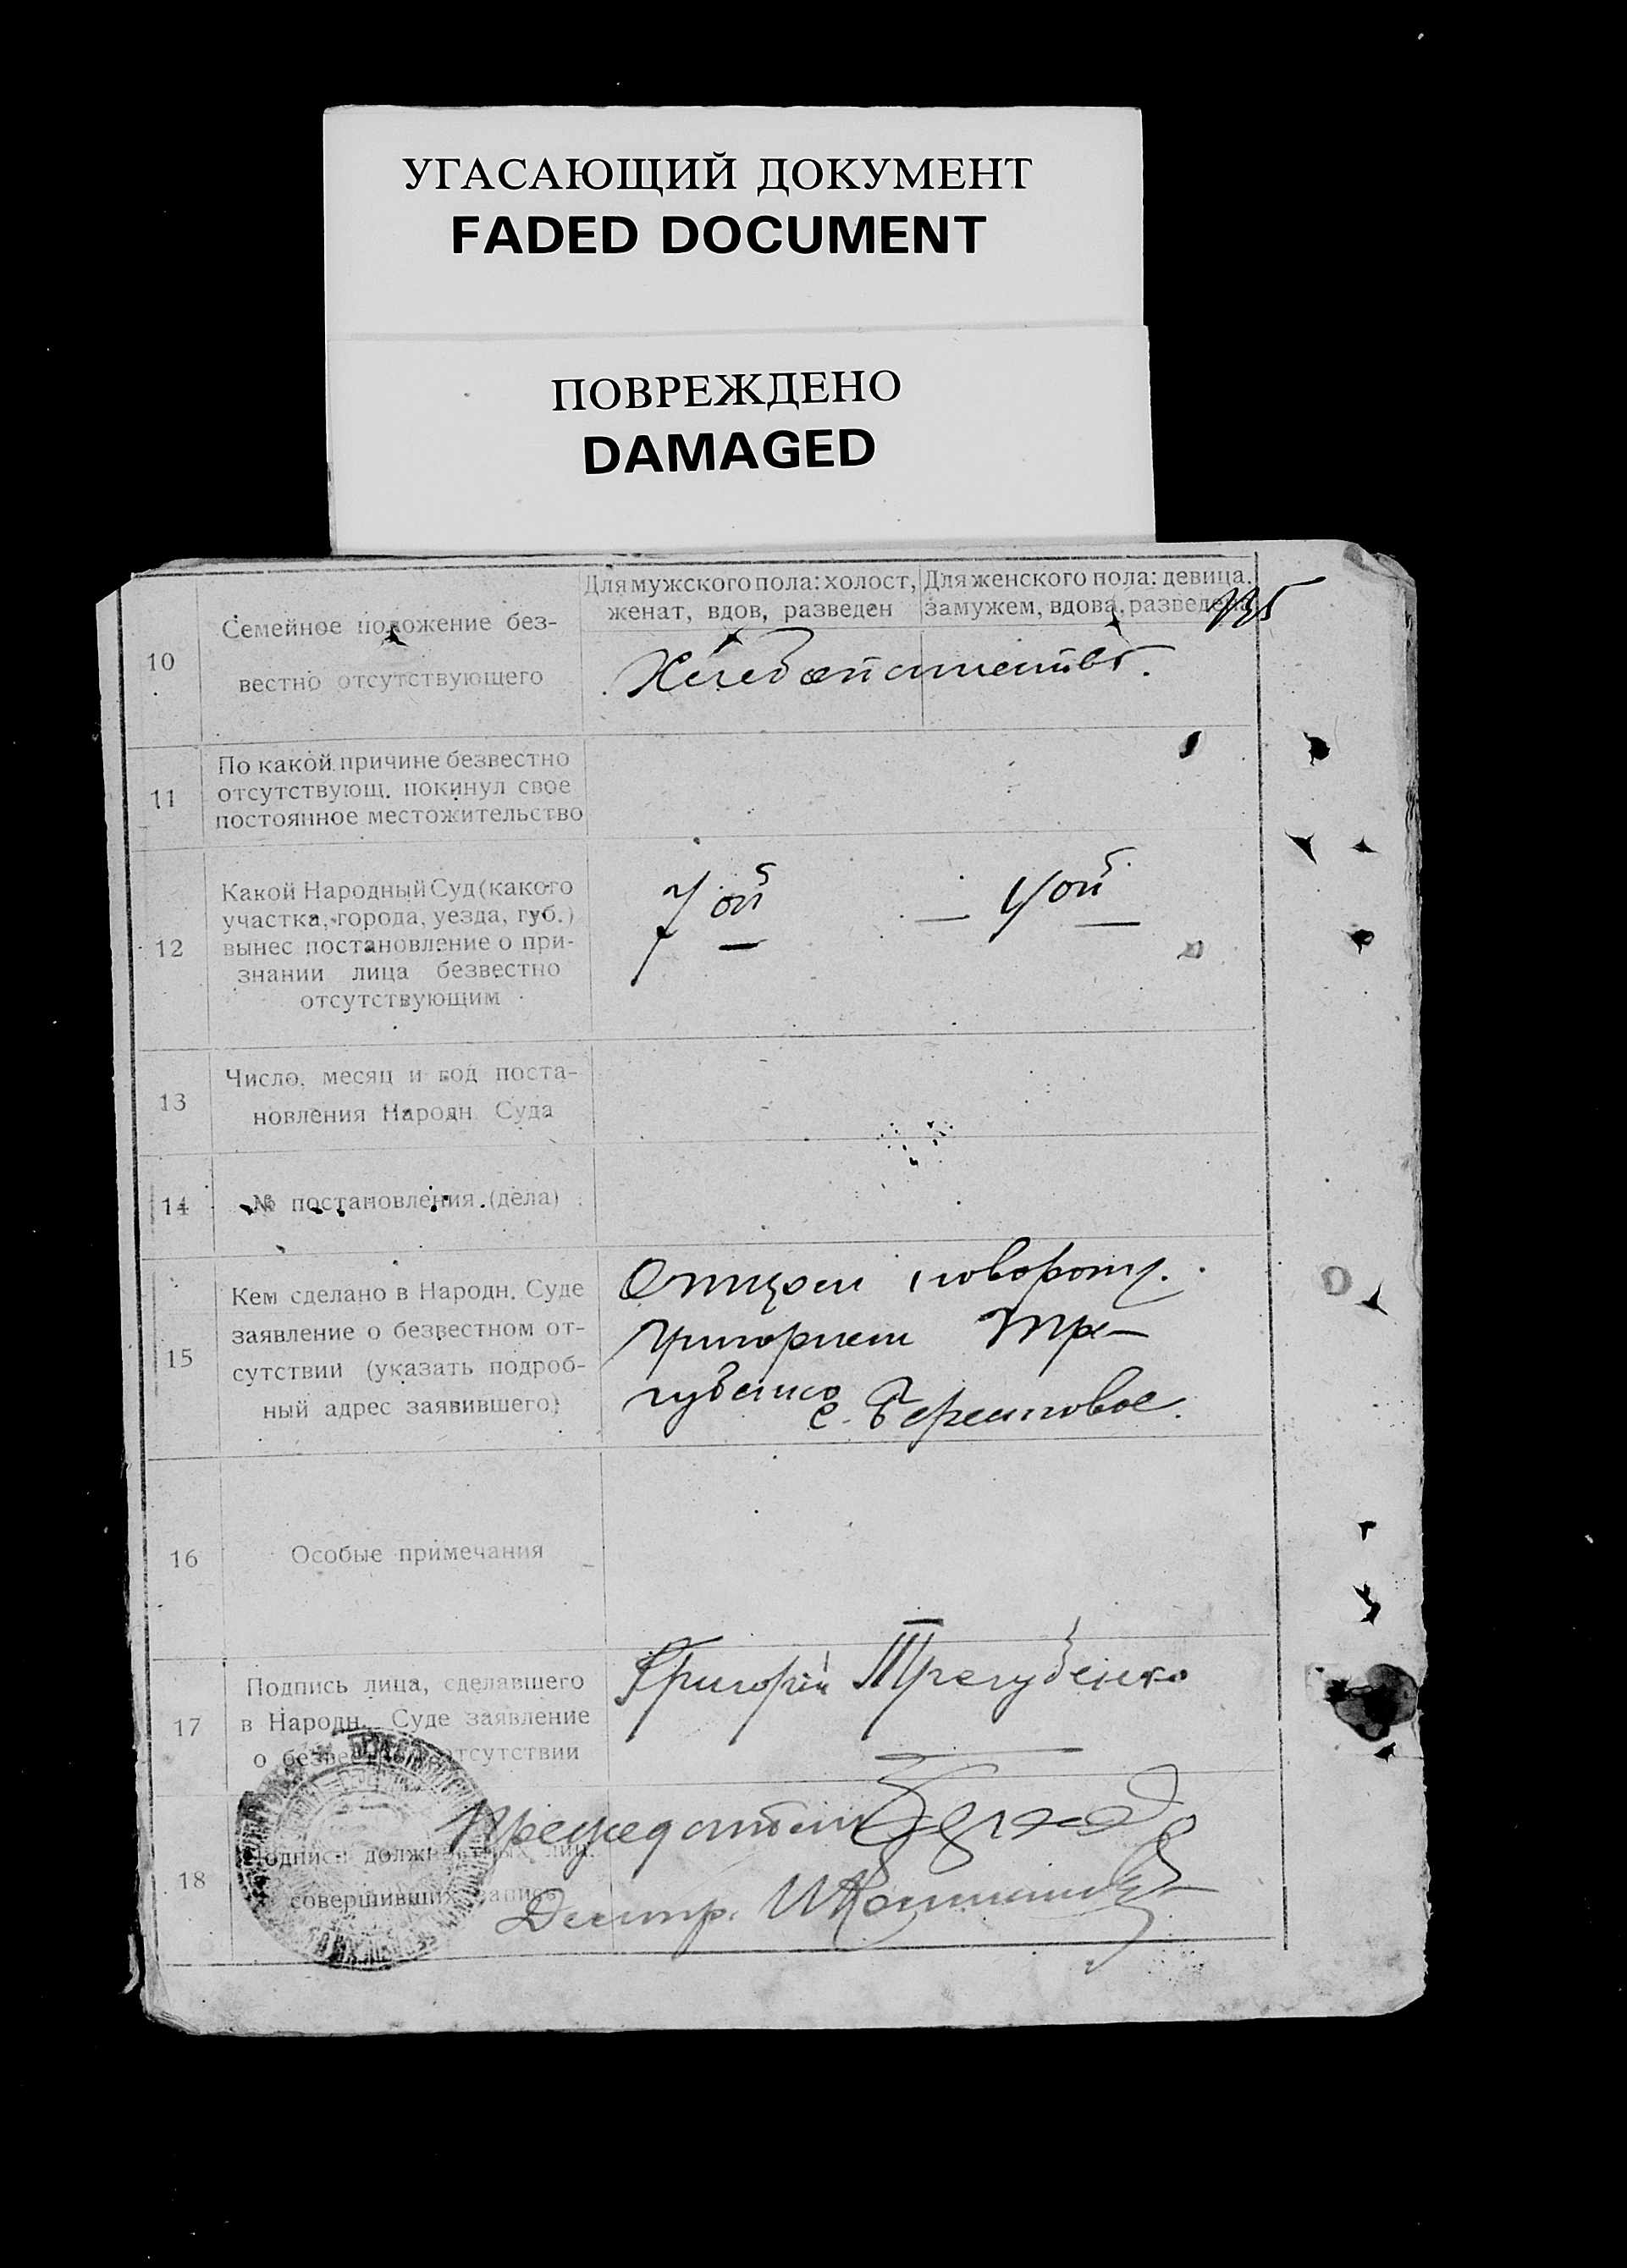 УГАСАЮЩИЙ ДОКУМЕНТ
FADED DOCUMENT
ПОВРЕЖДЕНО
DAMAGED
10
Семейное положение без-
вестно отсутствующего
Для мужского пола: холост,
женат, вдов, разведен
Для женского пола: девица,
замужем, вдова, разведена
Хлебопашество.
11
По какой причине безвестно
отсутствующ. покинул свое
постоянное местожительство
12
Какой Народный Суд (какого
участка, города, уезда, губ.)
вынес постановление о при-
знании лица безвестно
отсутствующим
7 ой — 4 ой —
13
Число, месяц и год поста-
новления Народн. Суда
14
№ постановления (дела)
15
Кем сделано в Народн. Суде
заявление о безвестном от-
сутствии (указать подроб-
ный адрес заявившего)
Отцом новорожд.
Григорием Тре-
губенко
с. Берестовое.
16
Особые примечания
17
Подпись лица, сделавшего
в Народн. Суде заявление
о безвестном отсутствии
Григорій Трегубенко
18
Подписи должностных лиц,
совершивших запись
Председатель